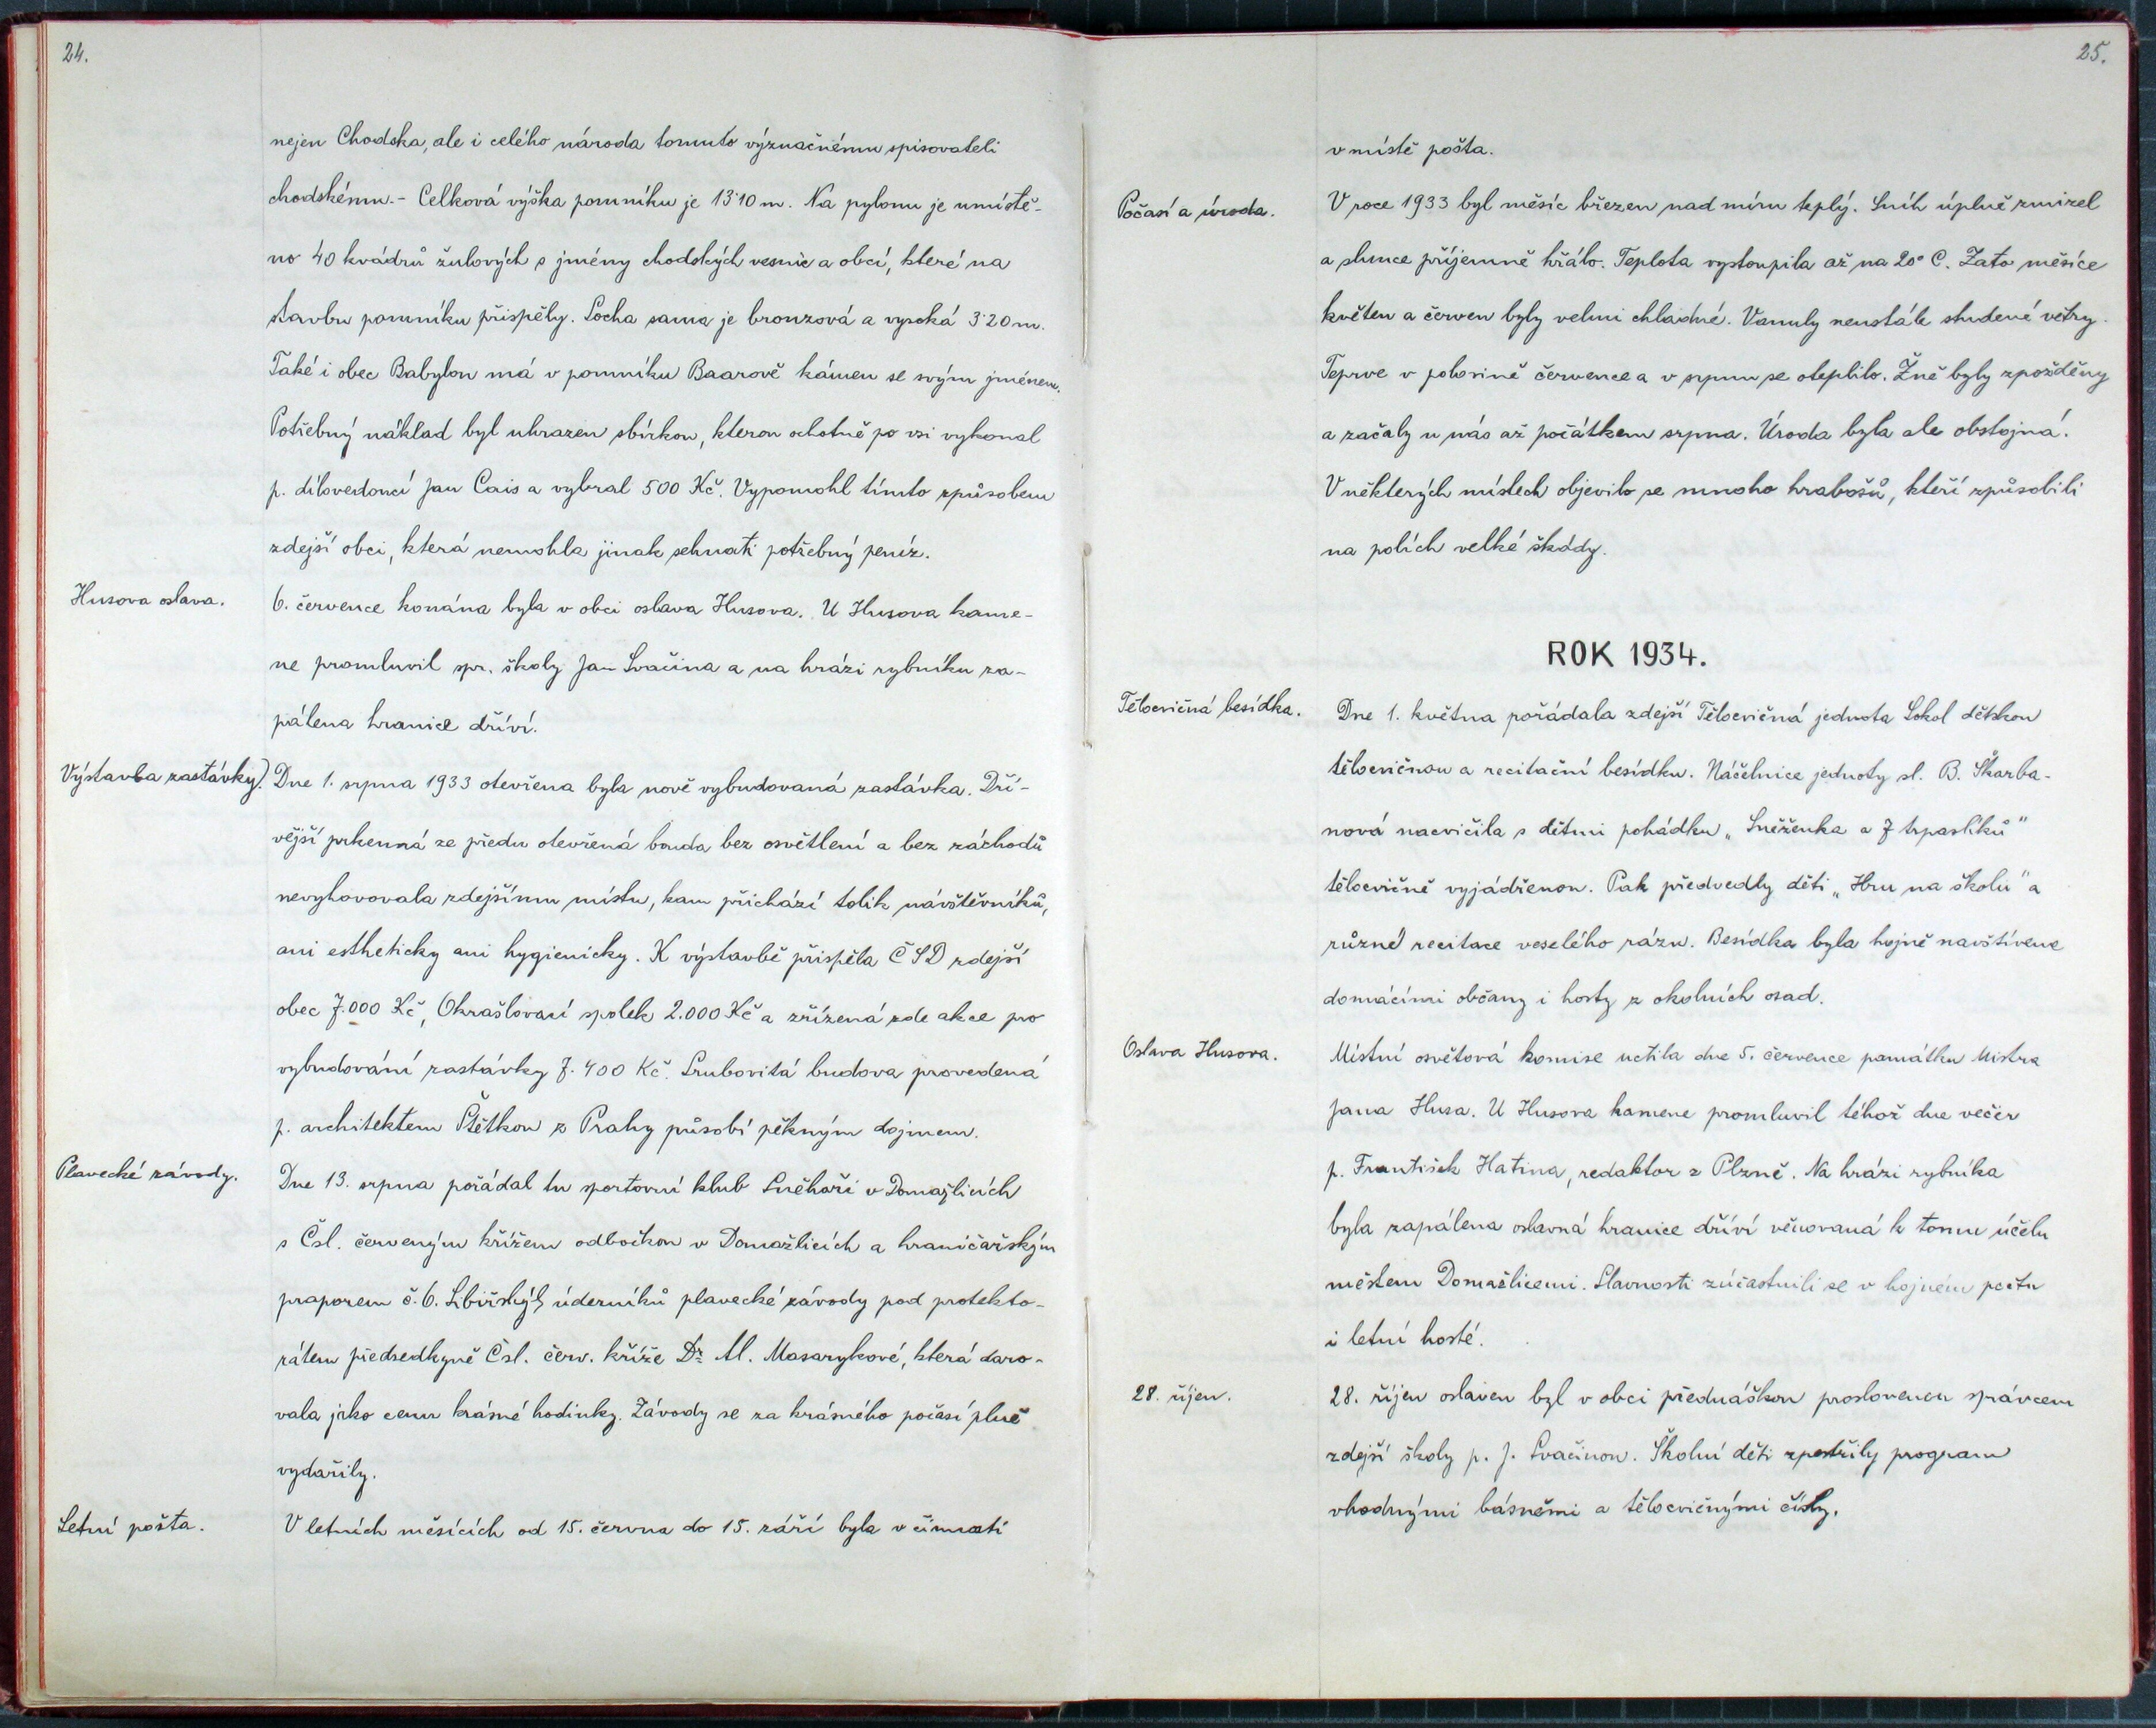 24.
nejen Chodska, ale i celého národa tomuto význačnému spisovateli
chodskému. - Celková výška pomníku je 13·10 m. Na pylonu je umístě-
no 40 kvádrů žulových s jmény chodských vesnic a obcí, které na
stavbu pomníku přispěly. Socha sama je bronzová a vysoká 3·20 m.
Také i obec Babylon má v pomníku Baarově kámen se svým jménem.
Potřebný náklad byl uhrazen sbírkou, kterou ochotně po vsi vykonal
p. dílovedoucí Jan Cais a vybral 500 Kč. Vypomohl tímto způsobem
zdejší obci, která nemohla jinak sehnati potřebný peníz.
Husova oslava.
6. července konána byla v obci oslava Husova. U Husova kame-
ne promluvil spr. školy Jan Svačina a na hrázi rybníku za-
pálena hranice dříví.
Výstavba zastávky).
Dne 1. srpna 1933 otevřena byla nově vybudovaná zastávka. Dří-
vější prkenná ze předu otevřená bouda bez osvětlení a bez záchodů
nevyhovovala zdejšímu místu, kam přichází tolik návštěvníků,
ani estheticky ani hygienicky. K výstavbě přispěla ČSD zdejší
obec 7.000 Kč, Okrašlovací spolek 2.000 Kč a zřízená zde akce pro
vybudování zastávky 7.400 Kč. Srubovitá budova provedená
p. architektem Štětkou z Prahy působí pěkným dojmem.
Plavecké závody.
Dne 13. srpna pořádal tu sportovní klub Sněhaři v Domažlicích
s Čsl. červeným křížem odbočkou v Domažlicích a hraničářským
praporem č. 6. Sibiřských úderníků plavecké závody pod protekto-
rátem předsedkyně Čsl. červ. kříže Dr. Al. Masarykové, která daro-
vala jako cenu krásné hodinky. Závody se za krásného počasí plně
vydařily.
Letní pošta.
V letních měsících od 15. června do 15. září byla v činnosti
25.
v místě pošta.
Počasí a úroda.
V roce 1933 byl měsíc březen nad míru teplý. Sníh úplně zmizel
a slunce příjemně hřálo. Teplota vystoupila až na 20° C. Zato měsíce
květen a červen byly velmi chladné. Vanuly neustále studené větry.
Teprve v polovině července a v srpnu se oteplilo. Žně byly zpožděny
a začaly u nás až počátkem srpna. Úroda byla ale obstojná.
V některých místech objevilo se mnoho hrabošů, kteří způsobili
na polích velké škody.
ROK 1934.
Tělocvičná besídka.
Dne 1. května pořádala zdejší Tělocvičná jednota Sokol dětskou
tělocvičnou a recitační besídku. Náčelnice jednoty sl. B. Škarba-
nová nacvičila s dětmi pohádku „Sněženka a 7 trpaslíků"
tělocvičně vyjádřenou. Pak předvedly děti „Hru na školu" a
různé recitace veselého rázu. Besídka byla hojně navštívena
domácími občany i hosty z okolních osad.
Oslava Husova.
Místní osvětová komise uctila dne 5. července památku Mistra
Jana Husa. U Husova kamene promluvil téhož dne večer
p. František Hatina, redaktor z Plzně. Na hrázi rybníka
byla zapálena oslavná hranice dříví věnovaná k tomu účelu
městem Domažlicemi. Slavnosti zúčastnili se v hojném počtu
i letní hosté.
28. říjen.
28. říjen oslaven byl v obci přednáškou proslovenou správcem
zdejší školy p. J. Svačinou. Školní děti zpestřily program
vhodnými básněmi a tělocvičnými čísly.